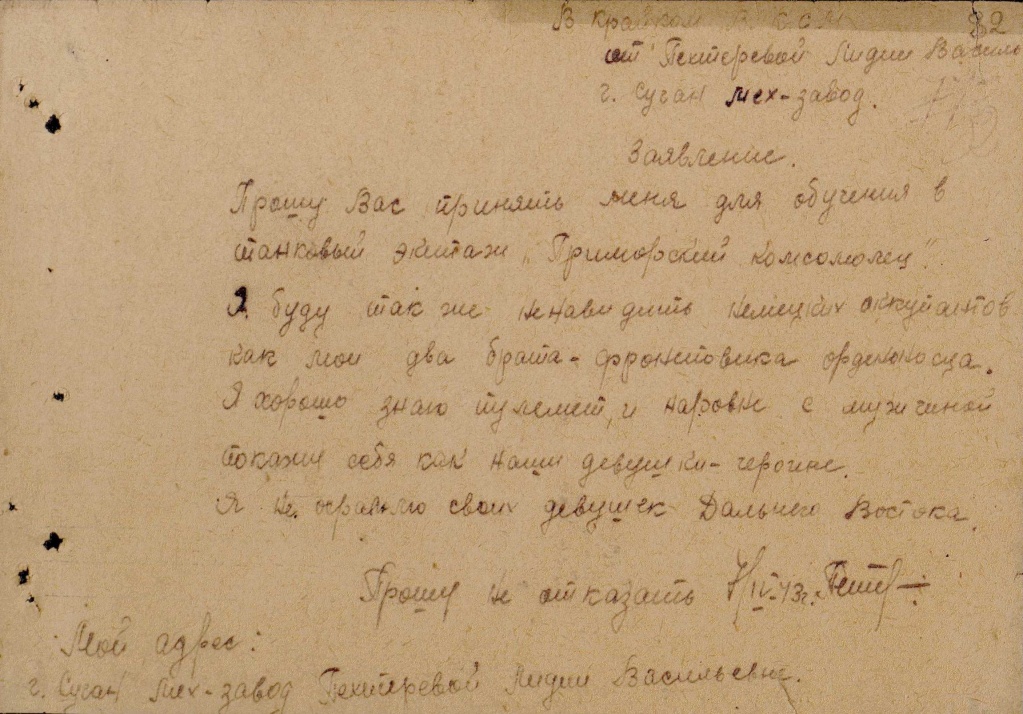 В крайком ВЛКСМ 82
от Пехтеревой Лидии Василь
г. Сучан мех-завод.
Заявление.
Прошу Вас принять меня для обучения в
танковый экипаж „Приморский комсомолец".
Я буду так же ненавидить немецких оккупантов
как мои два брата-фронтовика орденоносца.
Я хорошо знаю пулемет, и наровне с мужчиной
покажу себя как наши девушки-героине.
Я не осрамлю своих девушек Дальнего Востока.
Прошу не отказать 7/IV-43г.
Мой адрес:
г. Сучан мех-завод Пехтеревой Лидии Васильевне.